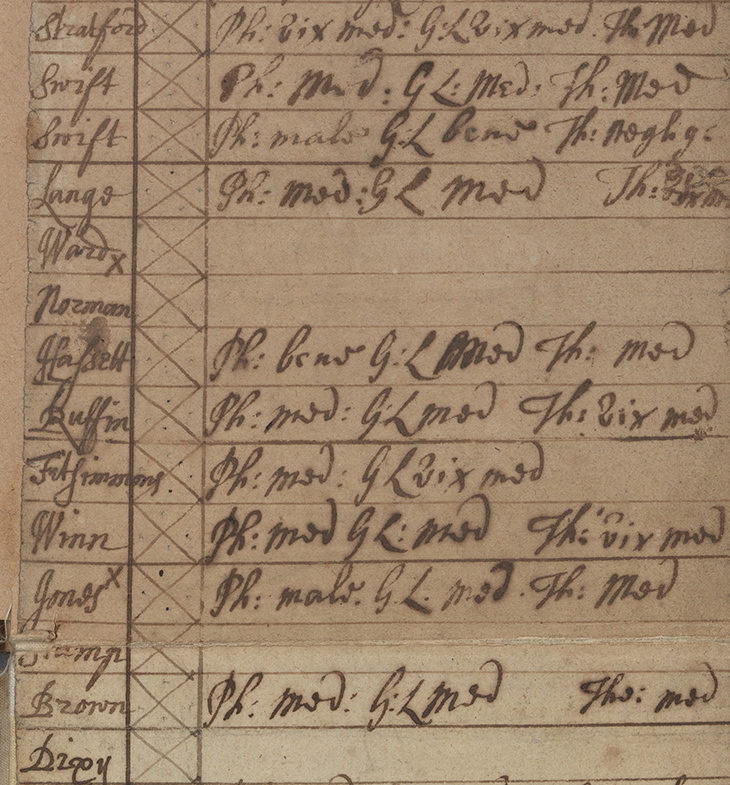 Stratford Ph: vix med: G L vix med. Th: Med
Swift Ph: Med: G L: Med: Th: Med
Swift Ph: male G: L bene Th: neglig:
Lange Ph: med: G L Med Th:
Ward x
Norman
Hassett Ph: bene G: L Med Th: med
Buffin Ph: med: G: L med Th: vix med
Fitsimmons Ph: med: G L vix med
Winn Ph: med G L: med Th: vix med
Jones x Ph: male. G. L. med. Th: Med
Brown Ph: med: G: L med The: med
Dixy